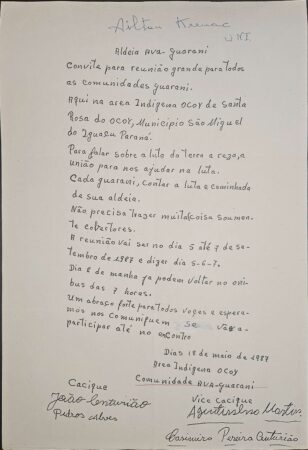 Ailton Krenac
UNI.
Aldeia AVA-Guarani
Convite para reunião grande para todos
as comunidades guarani.
Aqui na area Indígena OCOY de Santa
Rosa do OCOY, Município São Miguel
do Iguaçu Paraná.
Para falar sobre a luta da terra a reza, a
união para nos ajudar na luta.
Cada guarani, contar a luta e caminhada
de sua aldeia.
Não precisa trazer muita coisa soumen-
te cobertores.
A reunião vai ser no dia 5 até 7 de se-
tembro de 1987 e dizer dia 5-6-7.
Dia 8 de manha ja podem voltar no oni
bus das 7 horas.
Um abraço forte para todos voces e espera-
mos nos Comuniquem se vão a
participar até no encontro
Dias 18 de maio de 1987
Area Indigena OCOY
Comunidade AVA-Guarani
Cacique
João Centurião
Pedros Alves
Vice cacique
Martins
Casemiro Pereira Centurião